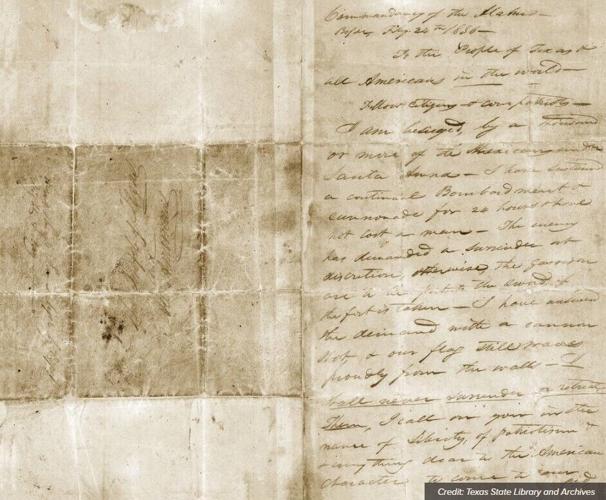 Commandancy of the Alamo—
Bejar, Fby. 24th 1836—
To the People of Texas &
all Americans in the world—
Fellow Citizens & compatriots—
I am besieged, by a thousand
or more of the Mexicans under
Santa Anna — I have sustained
a continual Bombardment &
cannonade for 24 hours & have
not lost a man — The enemy
has demanded a surrender at
discretion, otherwise, the garrison
are to be put to the sword, if
the fort is taken — I have answered
the demand with a cannon
shot, & our flag still waves
proudly from the wall — I
shall never surrender or retreat
Then, I call on you in the
name of Liberty, of patriotism &
everything dear to the American
character, to come to our
Credit: Texas State Library and Archives